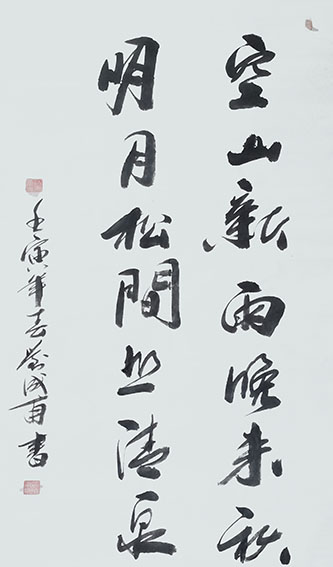 空山新雨晚来秋
明月松間照清泉
壬寅年春
書